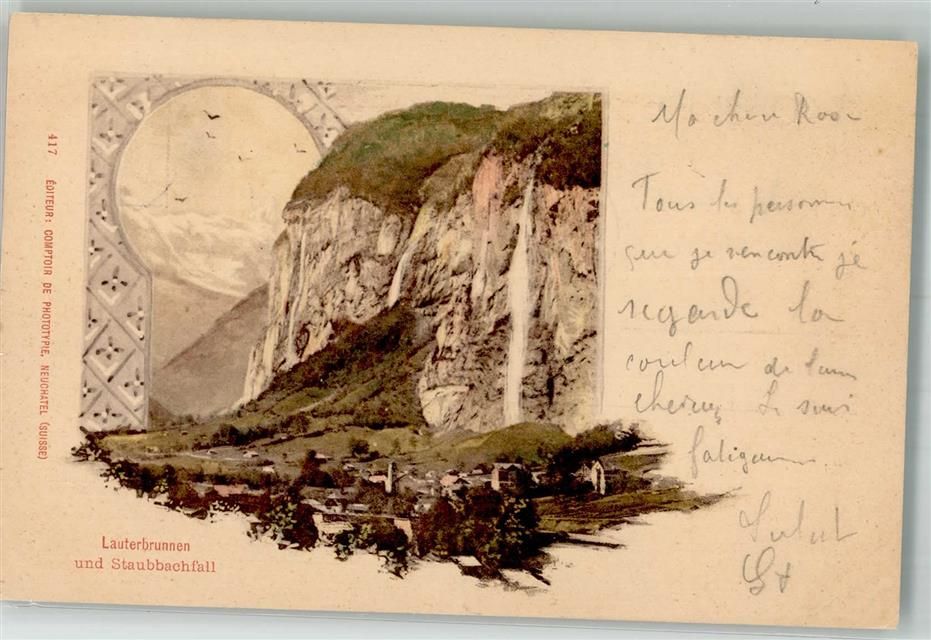 417 ÉDITEUR: COMPTOIR DE PHOTOTYPIE, NEUCHATEL (SUISSE)
Lauterbrunnen
und Staubbachfall
Ma chère Rose
Tous les personnes
que je rencontre je
regarde la
couleur de leurs
cheveux Je suis
Salut